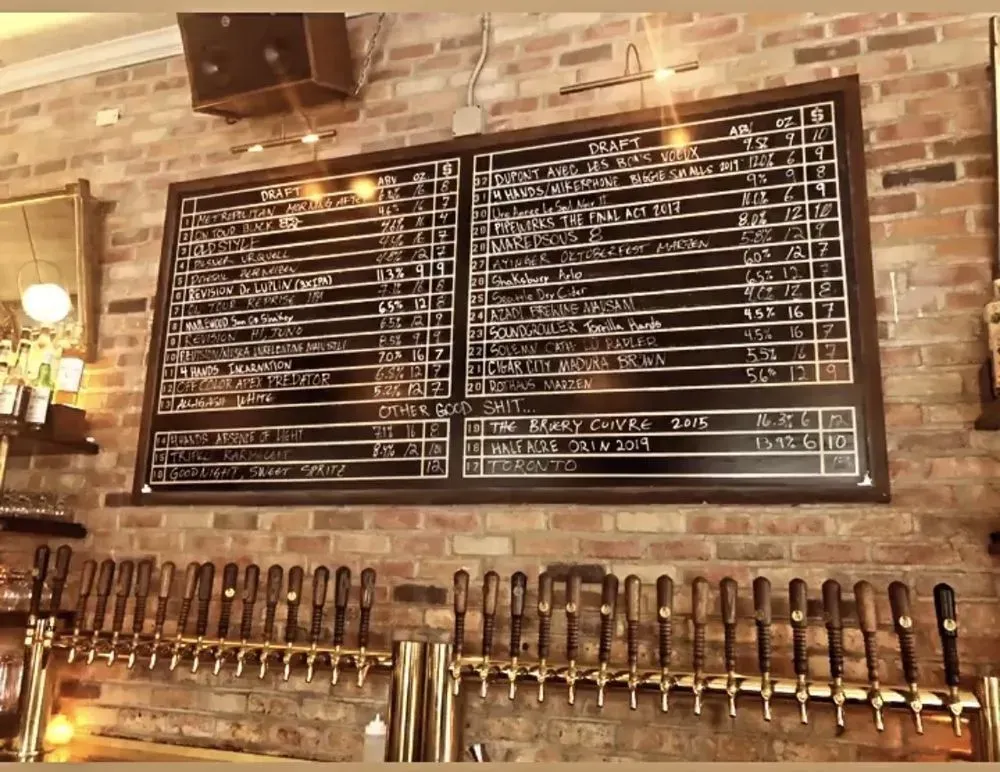 DRAFT ABV OZ $
1 METROPOLITAN MORNING AFTER 8
2 ON TOUR BLACK 16 7
3 OLD STYLE 16 4
4 PILSNER URQUELL 4.4% 16 7
5 12 7
6 REVISION Dr LUPLIN (3xIPA) 11.3% 9 9
7 REPRISE 16 8
8 MAPLEWOOD Son Of Shakey 6.5% 12 8
9 REVISION 6.5% 12 9
10 REVISION 8.5% 9 9
11 4 HANDS INCARNATION 7.0% 16 7
12 OFF COLOR APEX PREDATOR 6.5% 12 7
13 ALLAGASH WHITE 5.2% 12 7
DRAFT ABV OZ $
32 DUPONT AVEC LES BON'S VOEUX 9.5% 9 10
31 4 HANDS/MIKERPHONE BIGGIE SMALLS 2019 12.0% 6 9
30 9% 9 8
29 PIPEWORKS THE FINAL ACT 2017 6 9
28 MAREDSOUS 8 8.0% 12 10
27 AYINGER OKTOBERFEST MARZEN 5.8% 12 9
26 Shaksbury Arlo 6.0% 12 7
25 Seattle Dry Cider 6.5% 12 7
24 AZADI BREWING 12 8
23 SOUNDGROWLER Torrilla Hands 4.5% 16 7
22 SOLEMN OATH LU RADLER 4.5% 16 7
21 CIGAR CITY MADURA BROWN 5.5% 16 7
20 ROTHAUS MARZEN 5.6% 12 9
OTHER GOOD SHIT...
14 4 HANDS ABSENCE OF LIGHT 7.1% 16 8
15 TRIPLE KARMELIET 8.4% 12 10
16 GOODNIGHT, SWEET SPRITZ 12
19 THE BRUERY CUIVRE 2015 16.3% 6 12
18 HALF ACRE ORIN 2019 13.9% 6 10
17 TORONTO